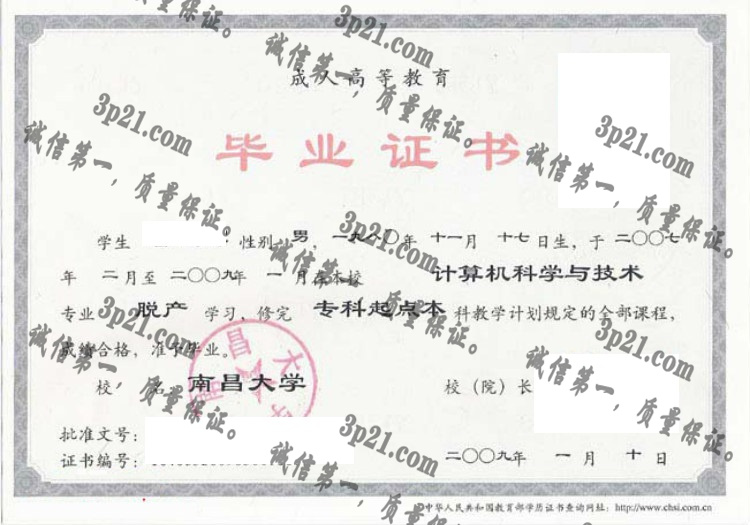 成人高等教育
毕业证书
学生 性别 男，一九八〇年 十一月 十七日生，于 二〇〇七
年 二月至 二〇〇九年 一月在本校 计算机科学与技术
专业 脱产 学习，修完 专科起点本 科教学计划规定的全部课程，
成绩合格，准予毕业。
校 名 南昌大学 校（院）长
批准文号：
证书编号： 二〇〇九年 一月 十日
中华人民共和国教育部学历证书查询网址：http://www.chsi.com.cn
3p21.com
诚信第一，质量保证。
3p21.com
诚信第一，质量保证。
3p21.com
诚信第一，质量保证。
3p21.com
诚信第一，质量保证。
3p21.com
诚信第一，质量保证。
3p21.com
诚信第一，质量保证。
3p21.com
诚信第一，质量保证。
3p21.com
诚信第一，质量保证。